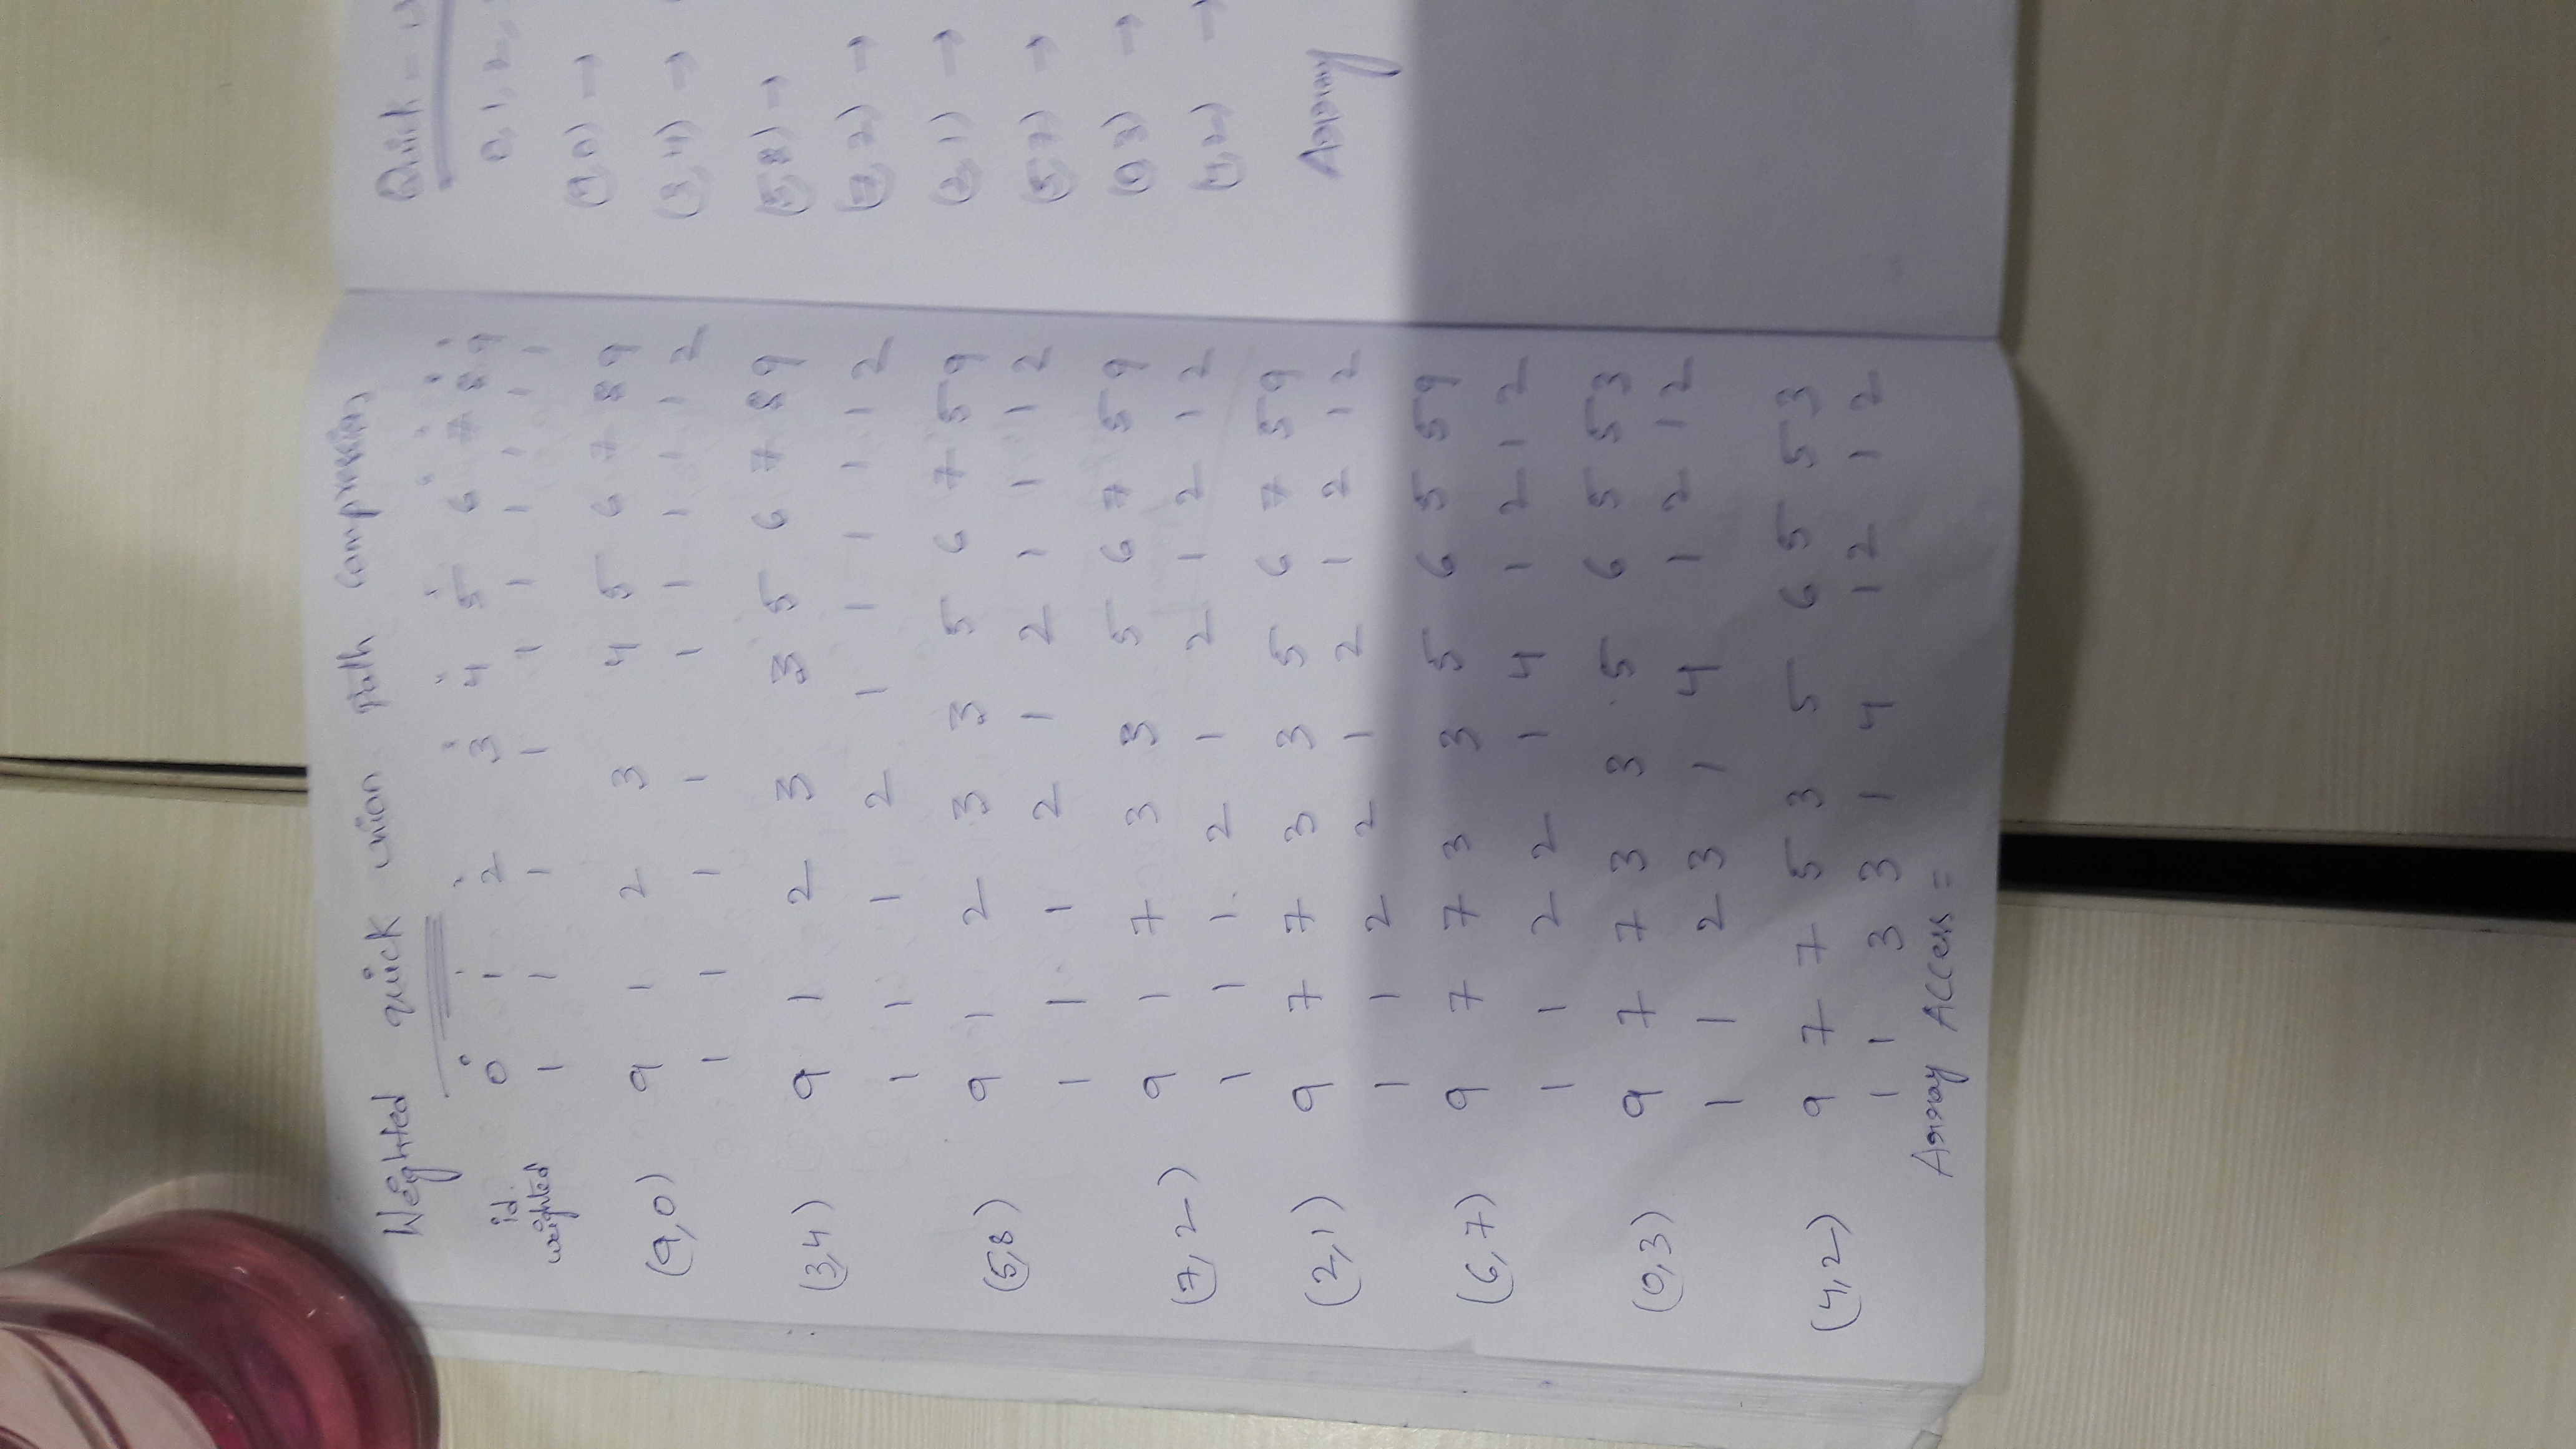 Weighted quick union path compression
id 0 1 2 3 4 5 6 7 8 9
weighted 1 1 1 1 1 1 1 1 1 1
(9,0) 9 1 2 3 4 5 6 7 8 9
1 1 1 1 1 1 1 1 1 2
(3,4) 9 1 2 3 3 5 6 7 8 9
1 1 1 2 1 1 1 1 1 2
(5,8) 9 1 2 3 3 5 6 7 5 9
1 1 1 2 1 2 1 1 1 2
(7,2) 9 1 7 3 3 5 6 7 5 9
1 1 1 2 1 2 1 2 1 2
(2,1) 9 7 7 3 3 5 6 7 5 9
1 1 2 2 1 2 1 2 1 2
(6,7) 9 7 7 3 3 5 6 5 5 9
1 1 2 2 1 4 1 2 1 2
(0,3) 9 7 7 3 3 5 6 5 5 3
1 1 2 3 1 4 1 2 1 2
(4,2) 9 7 7 5 3 5 6 5 5 3
1 1 3 3 1 4 1 2 1 2
Array Access =
Quick - u
0, 1, 2,
(9,0) →
(3,4) →
(5,8) →
(7,2) →
(2,1) →
(5,7) →
(0,3) →
(4,2) →
Array